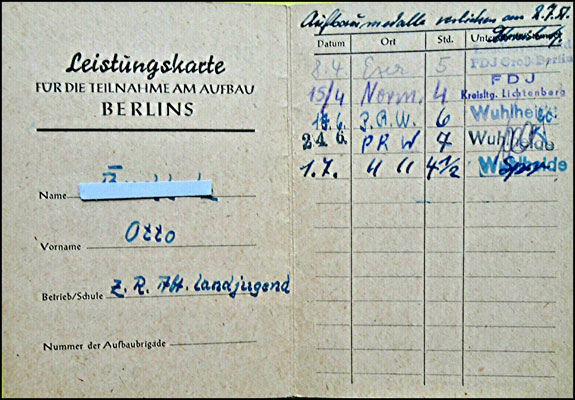 Leistungskarte
FÜR DIE TEILNAHME AM AUFBAU
BERLINS
Name
Vorname Otto
Betrieb/Schule Z. R. Abt. Landjugend
Nummer der Aufbaubrigade
Aufbaumedaille verliehen am 2.7.51.
Datum Ort Std.
8.4 5 FDJ Groß-Berlin
15/4 Norm. 4 FDJ
Kreisltg. Lichtenberg
6. P.R.W. 6 Wuhlheide
24 6. PRW 7 Wuhlheide
1.7. " " 4 1/2 Wuhlheide